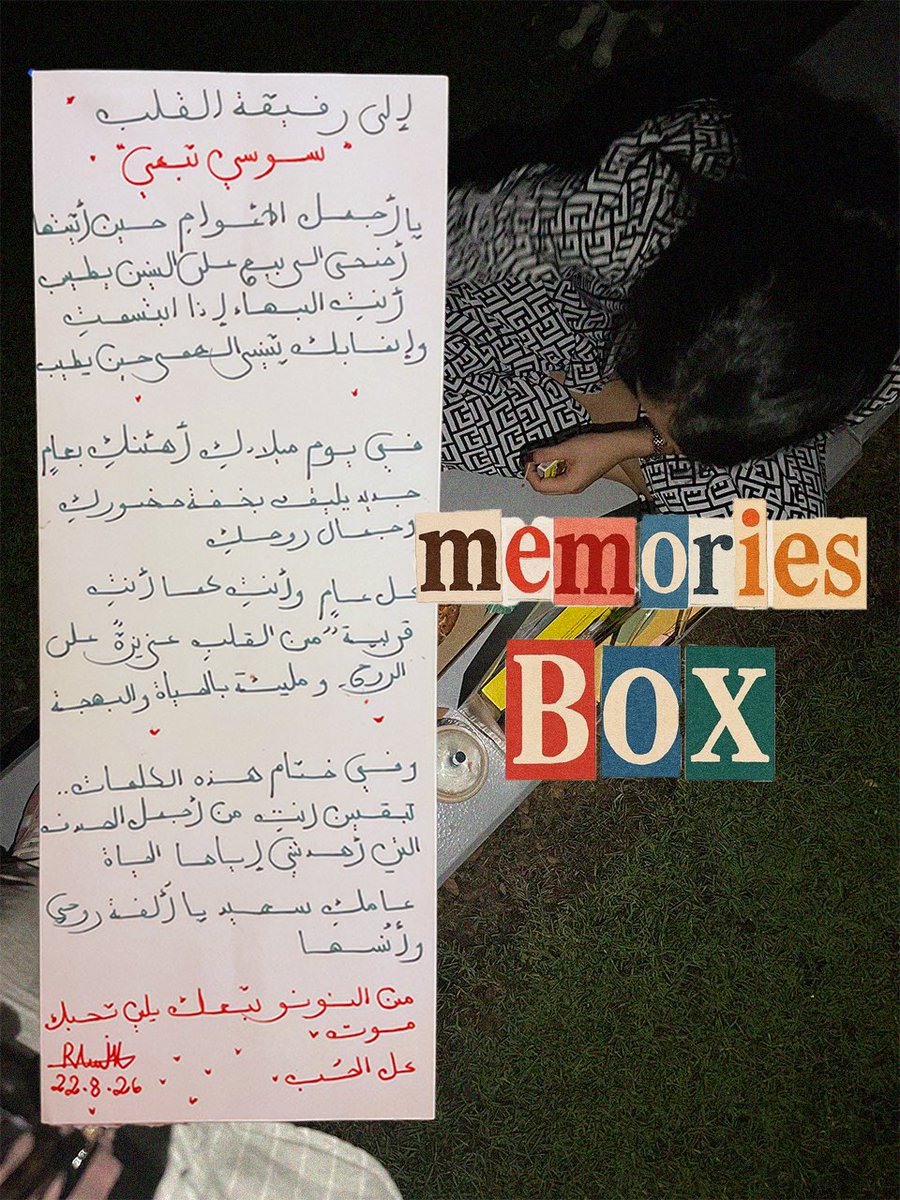 إلى رفيقة القلب
"سوسي تبعي"
يا أجمل الأعوام حين أتيتها
أضحى الربيع على اليدين يطيب
أنتِ البهاء إذا ابتسمتِ
وإن غابك يُنسى الهمس حين يطيب
في يوم ميلادكِ أهنئكِ بعامٍ
جديد يليق بخفة حضوركِ
وجمال روحكِ
كل عامٍ وأنتِ كما أنتِ
قريبةً من القلبِ عزيزةً على
الروح.. ومليئة بالحياة والبهجة
وفي ختام هذه الكلمات..
تبقين أنتِ من أجمل الصدف
التي أهدتني إياها الحياة
عامكِ سعيد يا أُلفة روحي
وأُنسها
من النونو تبعك يلي تحبك
موت
كل الحُب
22.8.26
memories
BOX